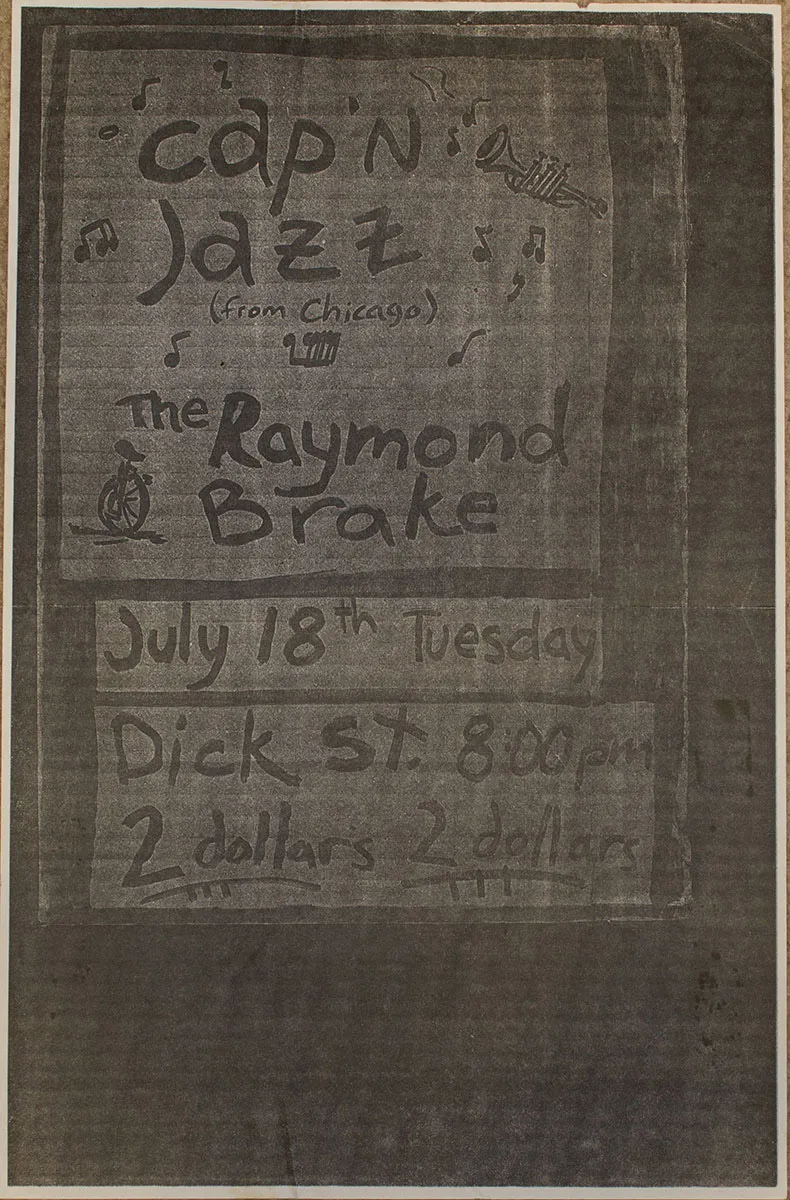 cap'n
Jazz
(from Chicago)
The Raymond
Brake
July 18th Tuesday
Dick St. 8:00pm
2 dollars 2 dollars